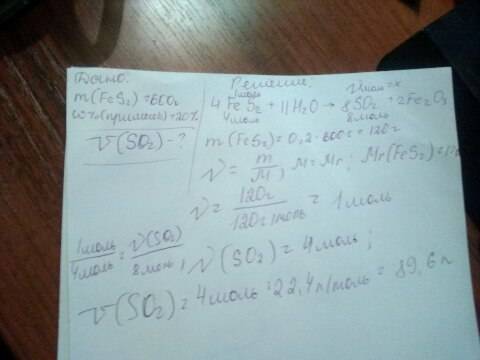 Дано:
m(FeS₂) = 600г
ω%(примеси) = 20%
V(SO₂) - ?
Решение:
1 моль
4FeS₂ + 11H₂O → 8SO₂ + 2Fe₂O₃
4 моль 8 моль
m(FeS₂) = 0,2 · 600г = 120г
ν = m/M; M = Mr; Mr(FeS₂) =
ν = 120г / 120г/моль = 1 моль
1 моль / 4 моль = ν(SO₂) / 8 моль; ν(SO₂) = 4 моль;
V(SO₂) = 4 моль · 22,4 л/моль = 89,6 л